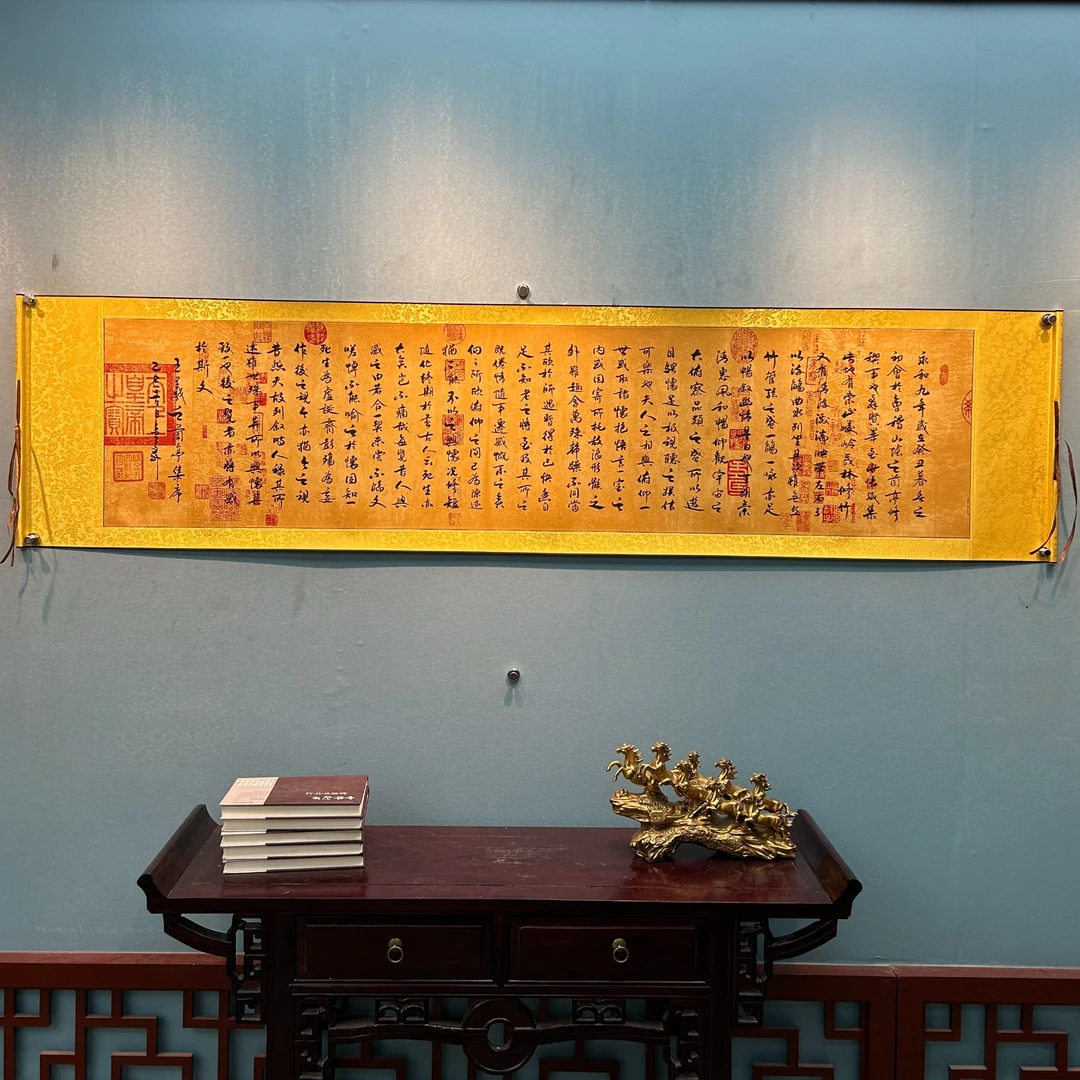 永和九年歲在癸丑暮春之
初會於會稽山陰之蘭亭修
禊事也群賢畢至少長咸集
此地有崇山峻嶺茂林修竹
又有清流激湍映帶左右引
以為流觴曲水列坐其次雖無絲
竹管弦之盛一觴一詠亦足
以暢敘幽情是日也天朗氣
清惠風和暢仰觀宇宙之
大俯察品類之盛所以遊
目騁懷足以極視聽之娛信
可樂也夫人之相與俯仰一
世或取諸懷抱悟言一室之
內或因寄所托放浪形骸之
外雖趣舍萬殊靜躁不同當
其欣於所遇暫得於己快然自
足不知老之將至及其所之
既倦情隨事遷感慨係之矣
向之所欣俯仰之間已為陳迹
猶不能不以之興懷況修短
隨化終期於盡古人云死生亦
大矣豈不痛哉每覽昔人興
感之由若合一契未嘗不臨文
嗟悼不能喻之於懷固知一
死生為虛誕齊彭殤為妄
作後之視今亦猶今之視
昔悲夫故列敘時人錄其所
述雖世殊事異所以興懷其
致一也後之覽者亦將有感
於斯文
王羲之蘭亭集序
皇帝之寶